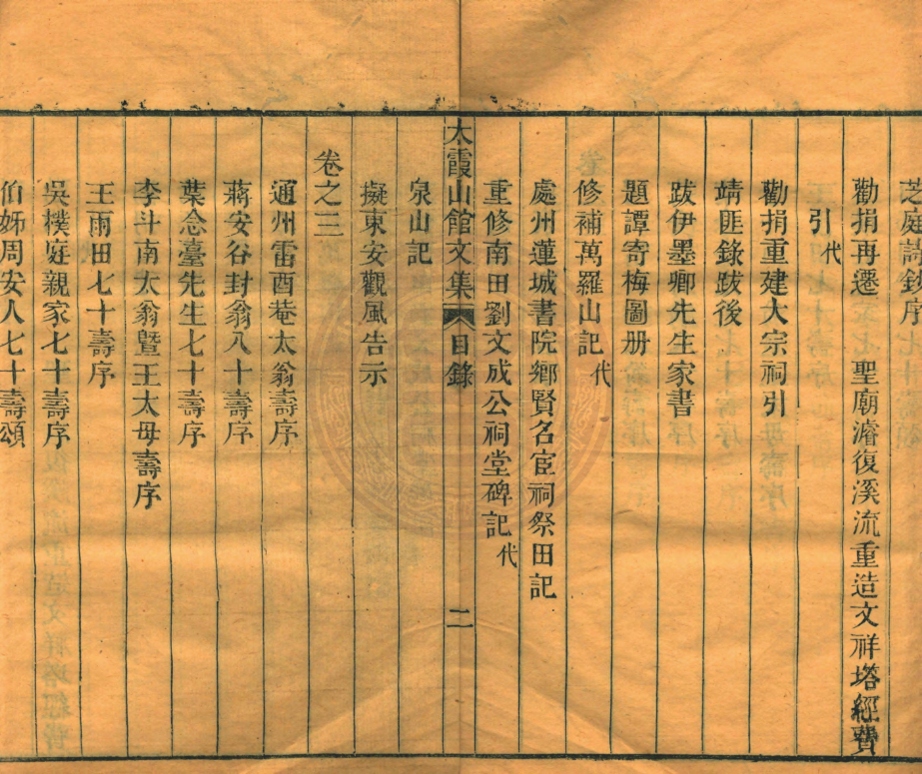 芝庭詩鈔序
勸捐再遷　聖廟濬復溪流重造文祥塔經費
引代
勸捐重建大宗祠引
靖匪錄跋後
跋伊墨卿先生家書
題譚寄梅圖册
修補萬羅山記代
處州蓮城書院鄉賢名宦祠祭田記
重修南田劉文成公祠堂碑記代
太霞山館文集　目錄　二
泉山記
擬東安觀風告示
卷之三
通州雷酉菴太翁壽序
蔣安谷封翁八十壽序
葉念臺先生七十壽序
李斗南太翁暨王太母壽序
王雨田七十壽序
吳樸庭親家七十壽序
伯姊周安人七十壽頌